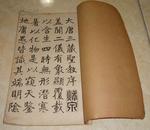 大唐三藏聖教序
蓋聞二儀有象顯覆載
以含生四時無形潛寒
暑以化物是以窺天鑒
地庸愚皆識其端明陰